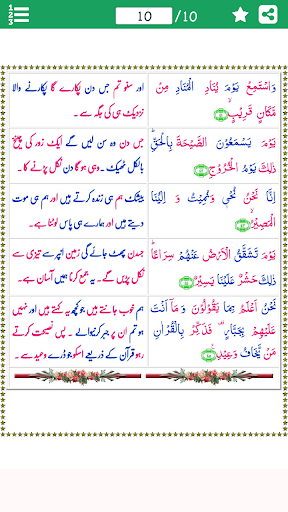 1
2
3
10
/10
وَاسْتَمِعْ يَوْمَ يُنَادِ الْمُنَادِ مِنْ
مَّكَانٍ قَرِيْبٍ
اور سنو تم جس دن پکارے گا پکارنے والا
نزدیک ہی کی جگہ سے۔
يَوْمَ يَسْمَعُوْنَ الصَّيْحَةَ بِالْحَقِّ ؕ
ذٰلِكَ يَوْمُ الْخُرُوْجِ
جس دن وہ سن لیں گے ایک زور کی چیخ
بالکل ٹھیک۔ وہی ہو گا دن نکل پڑنے کا۔
اِنَّا نَحْنُ نُحْيٖ وَنُمِيْتُ وَ اِلَيْنَا
الْمَصِيْرُ
بیشک ہم ہی زندہ کرتے ہیں اور ہم ہی موت
دیتے ہیں اور ہمارے ہی پاس لوٹنا ہے۔
يَوْمَ تَشَقَّقُ الْاَرْضُ عَنْهُمْ سِرَاعًا ؕ
ذٰلِكَ حَشْرٌ عَلَيْنَا يَسِيْرٌ
جسدن پھٹ جائے گی زمین انپر سے تیزی سے
نکل پڑیں گے۔ یہ جمع کرنا ہمیں آسان ہے۔
نَحْنُ اَعْلَمُ بِمَا يَقُوْلُوْنَ وَ مَاۤ اَنْتَ
عَلَيْهِمْ بِجَبَّارٍ ۟ فَذَكِّرْ بِالْقُرْاٰنِ
مَنْ يَّخَافُ وَعِيْدِ
ہم خوب جانتے ہیں جو کچھ یہ کہتے ہیں اور نہیں
ہو تم ان پر جبر کرنیوالے۔ پس نصیحت کرتے
رہو قرآن کے ذریعے اسکو جو ڈرے وعید سے۔